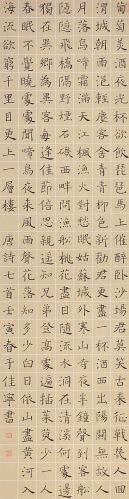 葡萄美酒夜光杯欲飲琵琶馬上催醉臥沙場君莫笑古來征戰幾人回
渭城朝雨浥輕塵客舍青青柳色新勸君更盡一杯酒西出陽關無故人
月落烏啼霜滿天江楓漁火對愁眠姑蘇城外寒山寺夜半鐘聲到客船
隱隱飛橋隔野煙石磯西畔問漁船桃花盡日隨流水洞在清溪何處邊
獨在異鄉為異客每逢佳節倍思親遙知兄弟登高處遍插茱萸少一人
春眠不覺曉處處聞啼鳥夜來風雨聲花落知多少白日依山盡黃河入
海流欲窮千里目更上一層樓 唐詩七首壬寅春于佳寧書